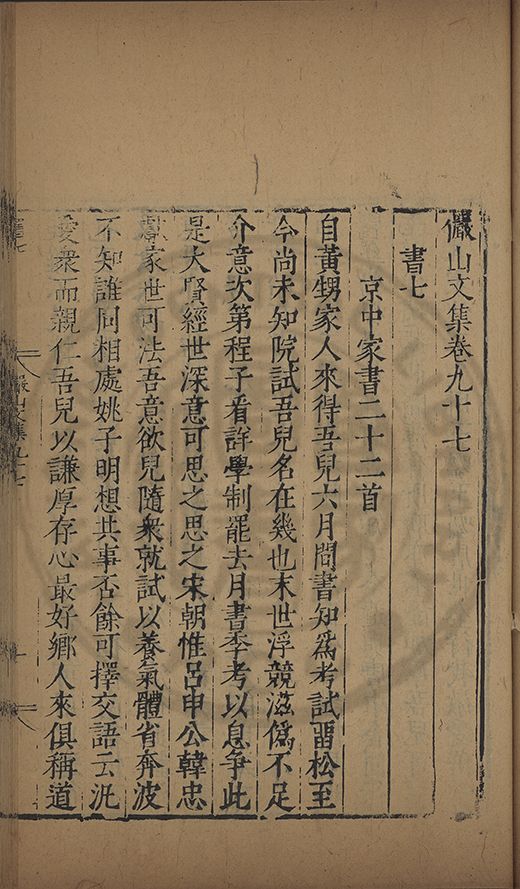 儼山文集卷九十七
書七
京中家書二十二首
自黃甥家人來得吾兒六月間書知爲考試畱松至
今尚未知院試吾兒名在幾也末世浮競滋僞不足
介意次第程子看詳學制罷去月書季考以息爭此
是大賢經世深意可思之思之宋朝惟呂申公韓忠
獻家世可法吾意欲兒隨衆就試以養氣體省奔波
不知誰同相處姚子明想共事否餘可擇交語云汎
愛衆而親仁吾兒以謙厚存心最好鄉人來俱稱道
儼山文集九十七
一